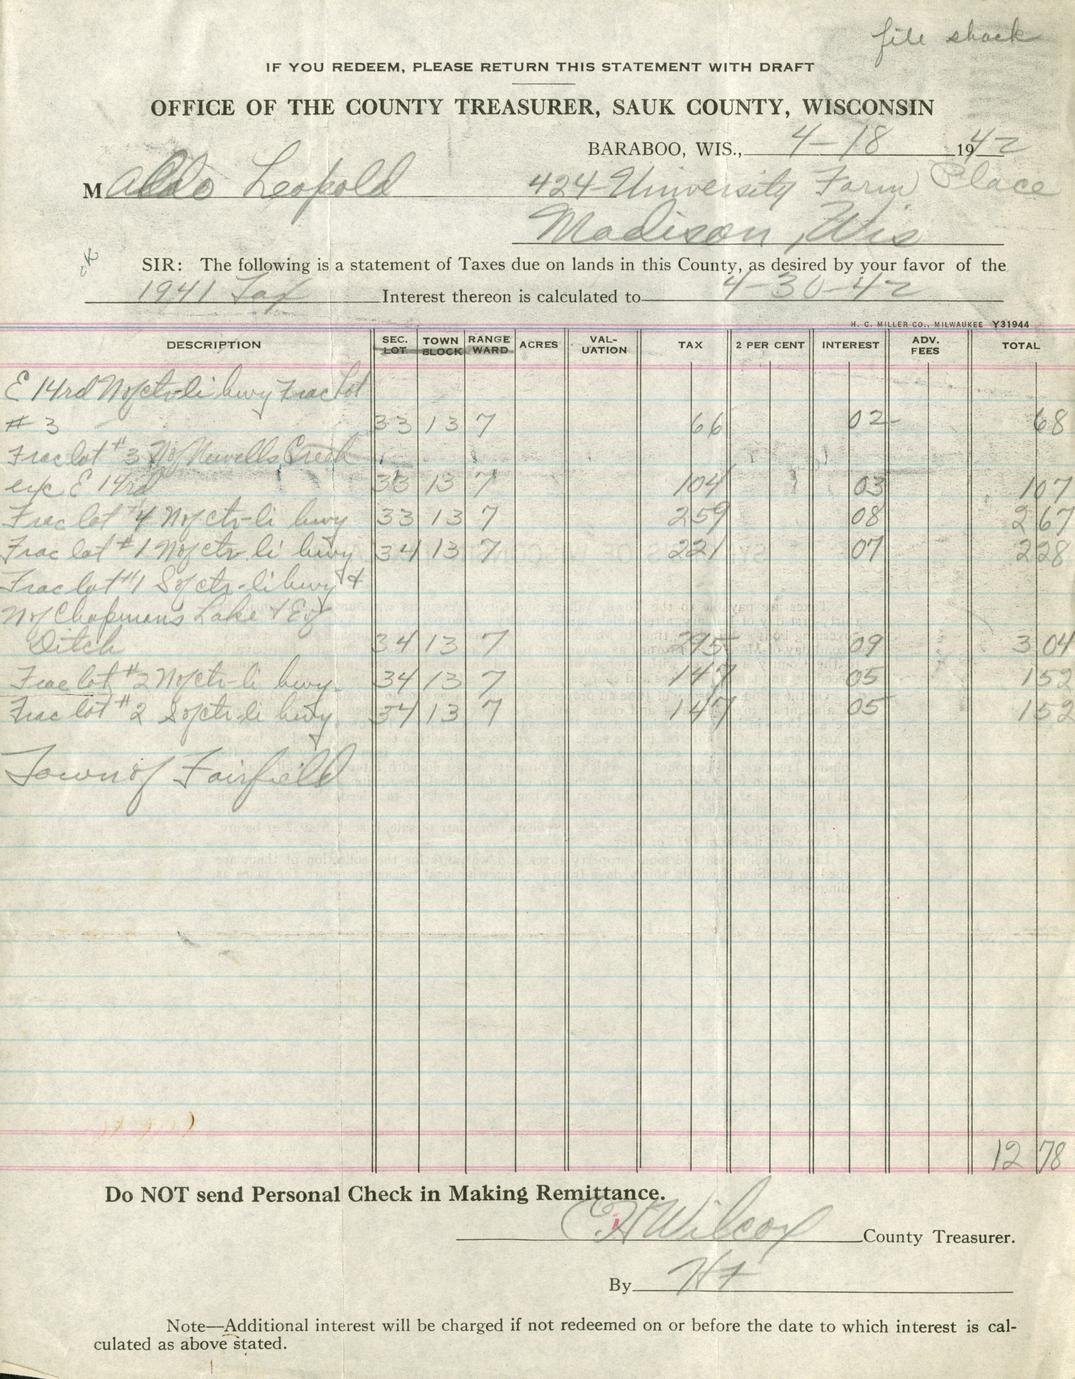 file shack
IF YOU REDEEM, PLEASE RETURN THIS STATEMENT WITH DRAFT
OFFICE OF THE COUNTY TREASURER, SAUK COUNTY, WISCONSIN
BARABOO, WIS., 4-18 1942
M Aldo Leopold 424 University Farm Place
Madison, Wis
ok
SIR: The following is a statement of Taxes due on lands in this County, as desired by your favor of the
1941 Tax Interest thereon is calculated to 4-30-42
H. C. MILLER CO., MILWAUKEE Y31944
DESCRIPTION SEC. LOT TOWN BLOCK RANGE WARD ACRES VAL-UATION TAX 2 PER CENT INTEREST ADV. FEES TOTAL
E 14rd N of ctr-li hwy Frac Lot
# 3 33 13 7 66 02 68
Frac lot #3 N of Newells Creek
exc E 14rd 33 13 7 104 03 107
Frac lot #4 N of ctr-li hwy 33 13 7 259 08 267
Frac lot #1 N of ctr-li hwy 34 13 7 221 07 228
Frac lot #1 S of ctr-li hwy &
N of Chapmans Lake & E of
Ditch 34 13 7 295 09 304
Frac lot #2 N of ctr-li hwy 34 13 7 147 05 152
Frac lot #2 S of ctr-li hwy 34 13 7 147 05 152
Town of Fairfield
12 78
Do NOT send Personal Check in Making Remittance.
Wilcox County Treasurer.
By HF
Note—Additional interest will be charged if not redeemed on or before the date to which interest is cal-
culated as above stated.